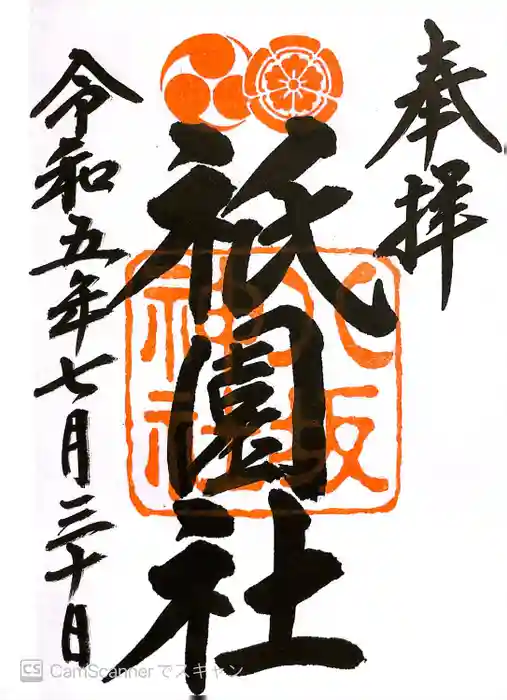 奉拝
祇園社
八坂
神社
令和五年七月三十日
CS CamScannerでスキャン